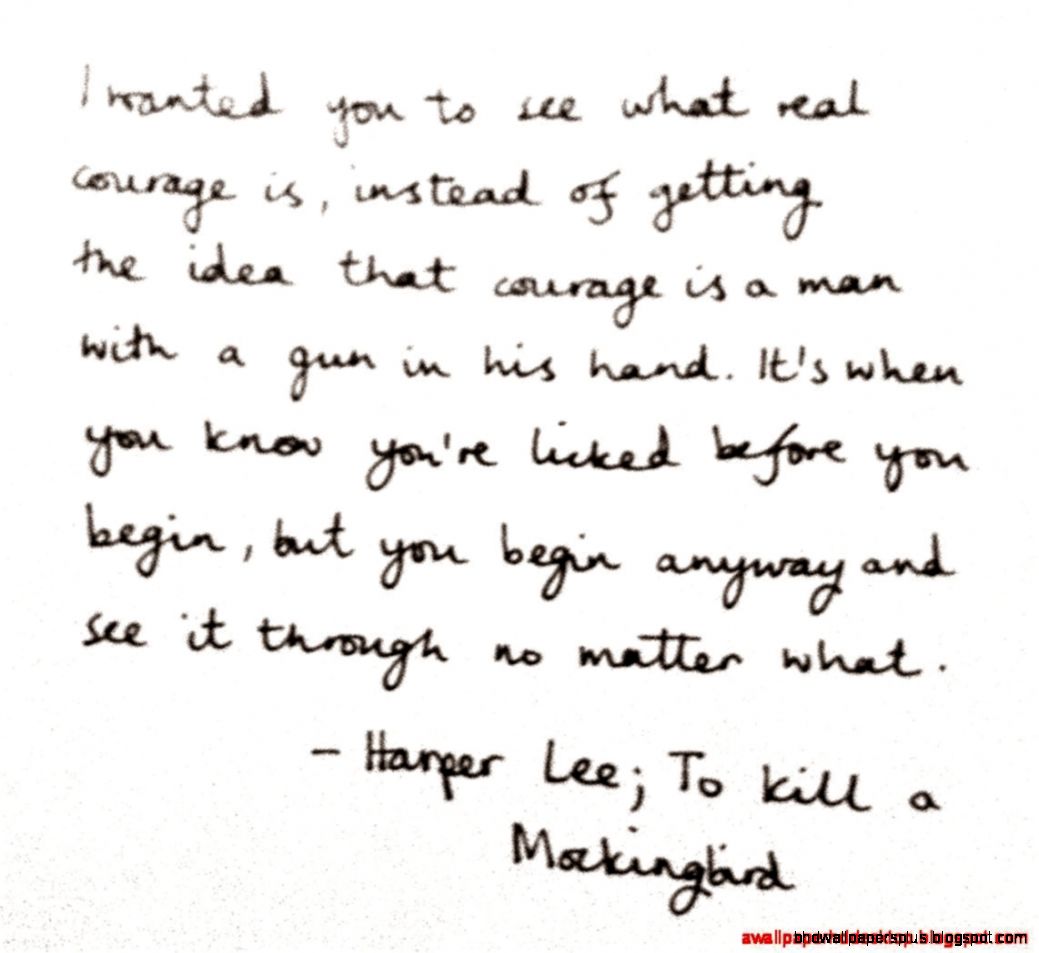 I wanted you to see what real
courage is, instead of getting
the idea that courage is a man
with a gun in his hand. It's when
you know you're licked before you
begin, but you begin anyway and
see it through no matter what.
– Harper Lee; To Kill a
Mockingbird